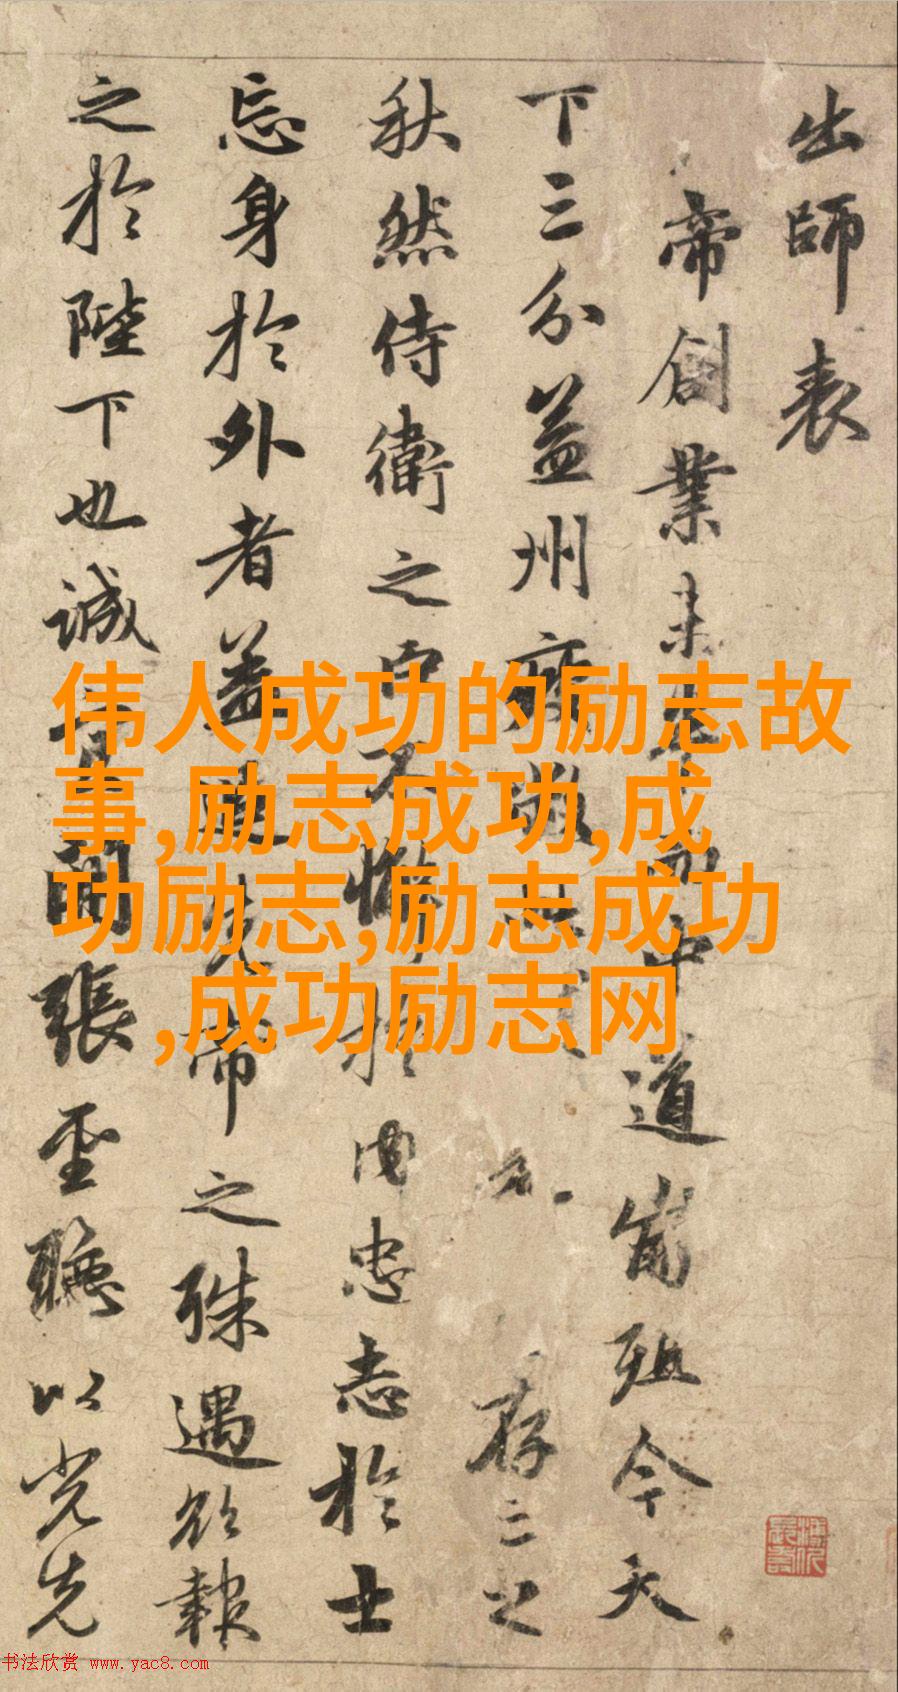 出師表
帝創業未中道崩殂今天
下三分益州疲敝存亡之
秋然侍衛之臣不懈於内忠志於士
忘身於外者蓋追先帝之殊遇欲報
之於陛下也誠宜開張聖聽以光先
伟人成功的励志故
事,励志成功,成
功励志,励志成功
,成功励志网
书法欣赏 www.yac8.com